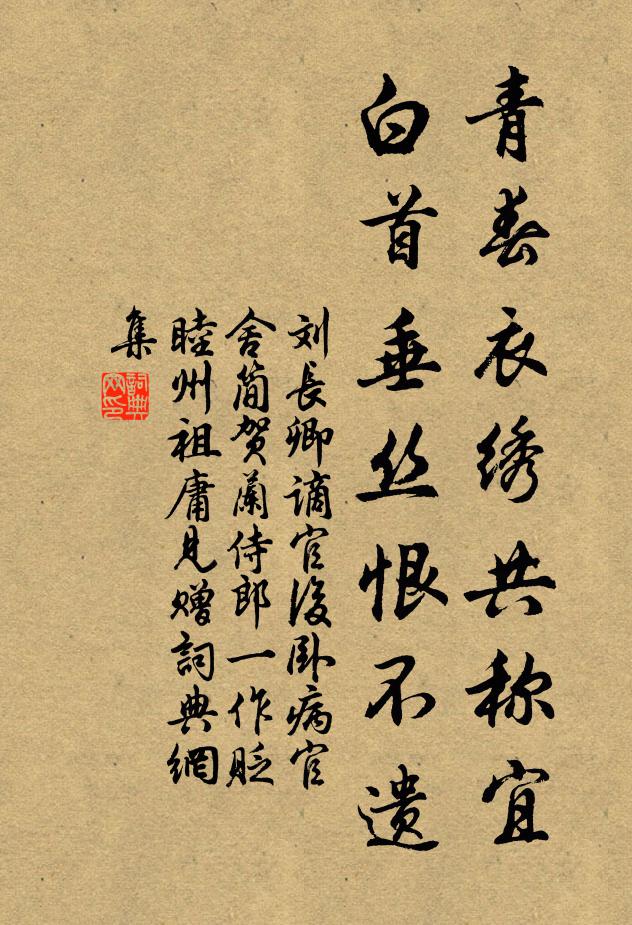 青春衣绣共称宜
白首垂丝恨不遗
刘長卿谪官後卧病官
舍简贺蘭侍郎一作贬
睦州祖庸见赠詞典網
集
詞典